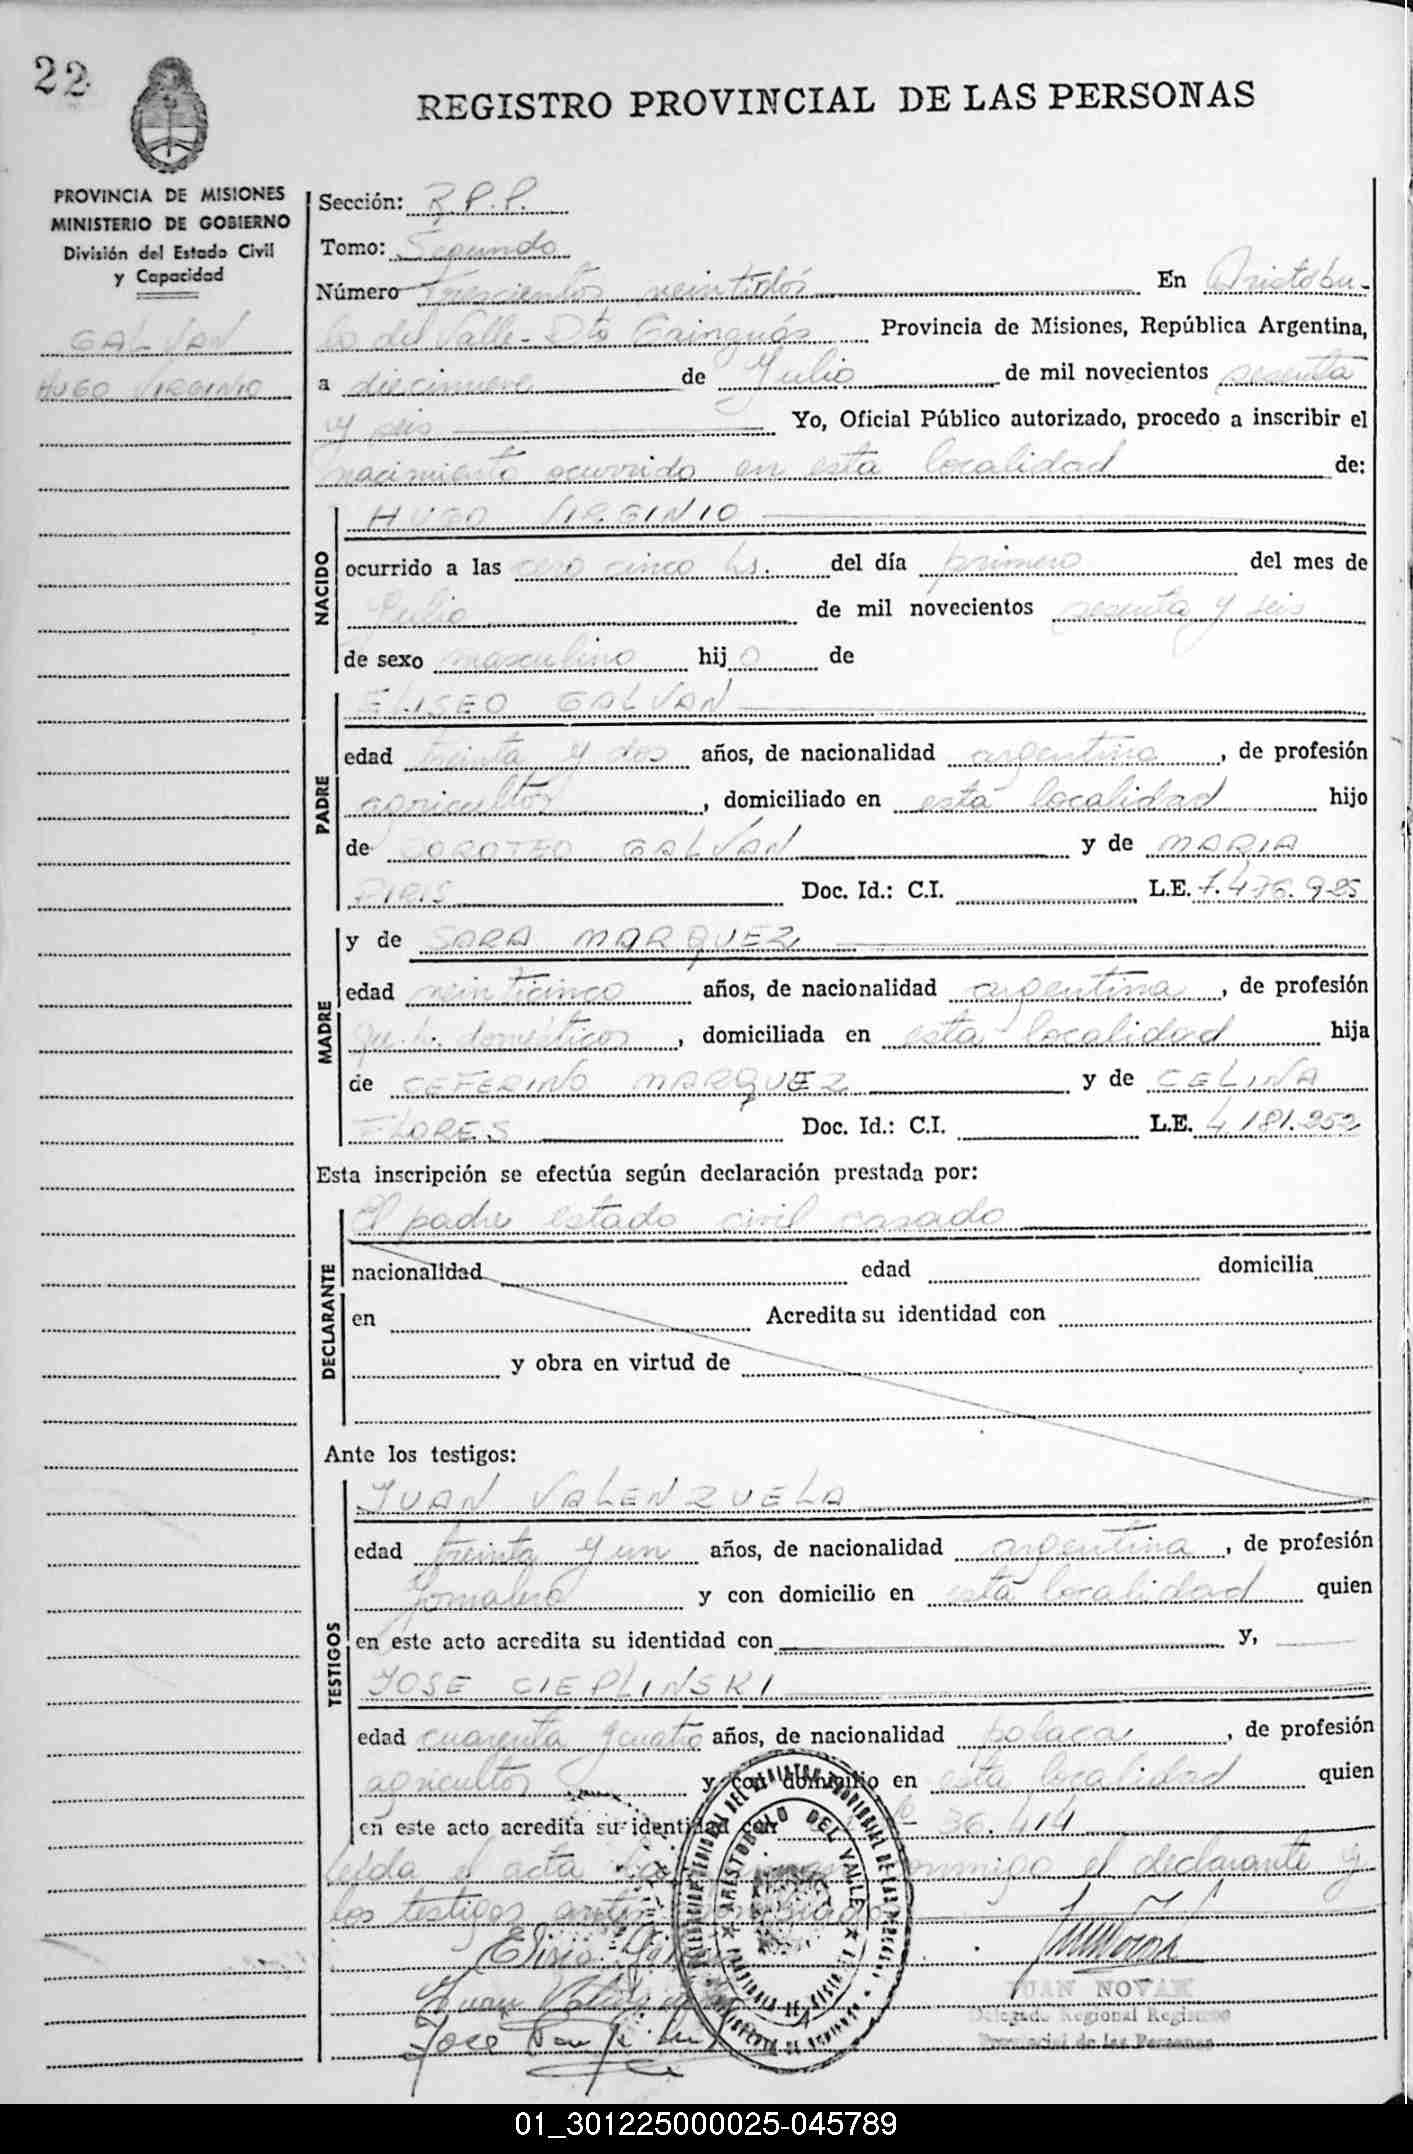 22
REGISTRO PROVINCIAL DE LAS PERSONAS
PROVINCIA DE MISIONES
MINISTERIO DE GOBIERNO
División del Estado Civil
y Capacidad
GALVAN
HUGO VIRGINIO
Sección: R.P.P.
Tomo: Segundo
Número Trescientos veintidós En Aristóbu-
lo del Valle - Dto Cainguás Provincia de Misiones, República Argentina,
a diecinueve de Julio de mil novecientos sesenta
y seis Yo, Oficial Público autorizado, procedo a inscribir el
nacimiento ocurrido en esta localidad de:
NACIDO
HUGO VIRGINIO
ocurrido a las cero cinco hs. del día primero del mes de
Julio de mil novecientos sesenta y seis
de sexo masculino hijo de
PADRE
ELISEO GALVAN
edad treinta y dos años, de nacionalidad argentina, de profesión
agricultor, domiciliado en esta localidad hijo
de DOROTEO GALVAN y de MARIA
PIRIS Doc. Id.: C.I. L.E. 7.476.925
MADRE
y de SARA MARQUEZ
edad veinticinco años, de nacionalidad argentina, de profesión
qu. h. domésticos, domiciliada en esta localidad hija
de CEFERINO MARQUEZ y de CELINA
FLORES Doc. Id.: C.I. L.E. 4.181.252
Esta inscripción se efectúa según declaración prestada por:
DECLARANTE
El padre estado civil casado
nacionalidad edad domicilia
en Acredita su identidad con
y obra en virtud de
Ante los testigos:
TESTIGOS
JUAN VALENZUELA
edad treinta y un años, de nacionalidad argentina, de profesión
Jornalero y con domicilio en esta localidad quien
en este acto acredita su identidad con y,
JOSE CIEPLINSKI
edad cuarenta y cuatro años, de nacionalidad polaca, de profesión
agricultor y con domicilio en esta localidad quien
en este acto acredita su identidad con 36.414
Leída el acta conmigo el declarante y
los testigos
ARISTOBULO DEL VALLE
JUAN NOVAK
Delegado Regional Registro
Provincial de las Personas
Jose
01_301225000025-045789